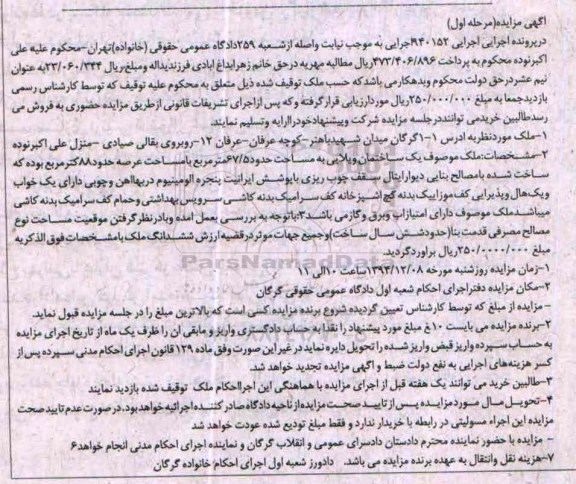 آگهی مزایده(مرحله اول)
درپرونده اجرایی اجرایی ۹۴۰۱۵۲اجرایی به موجب نیابت واصله ازشعبه ۲۵۹دادگاه عمومی حقوقی (خانواده)تهران-محکوم علیه علی
اکبرنوده محکوم به پرداخت ۴۷۳/۴۰۶/۸۹۶ریال مطالبه مهریه درحق خانم زهراباغ ابادی فرزندیداله ومبلغ ریال ۲۳/۰۶۰/۳۴۴به عنوان
نیم عشردرحق دولت محکوم وبدهکارمی باشدکه حسب ملک توقیف شده ذیل متعلق به محکوم علیه توقیف که توسط کارشناس رسمی
بازدیدجمعا به مبلغ ۲۵۰/۰۰۰/۰۰۰ریال موردارزیابی قرارگرفته وکه پس ازاجرای تشریفات قانونی ازطریق مزایده حضوری به فروش می
رسدطالبین خریدمی تواننددرجلسه مزایده شرکت وپیشنهادخودراارایه وتسلیم نمایند.
۱-ملک موردنظربه ادرس ۱-۱گرگان میدان شهیدباهنر-کوچه عرفان-عرفان ۱۲-روبروی بقالی صیادی -منزل علی اکبرنوده
۲-مشخصات:ملک موصوف یک ساختمان ویلایی به مساحت حدود۶۷/۵مترمربع بامساحت عرصه حدود۸۸مترمربع بوده که
ساخت شده بامصالح بنایی دیوارابتال سقف چوب ریزی باپوشش ایرانیت پنجره الومینیوم دربهااهن وچوبی دارای یک خواب
ویک هال وپذیرایی کف موزاییک بدنه گچ اشپزخانه کف سرامیک بدنه کاشی سرویس بهداشتی وحمام کف سرامیک بدنه کاشی
میباشدملک موصوف دارای امتیازاب وبرق وگازمی باشد۳:باتوجه به بررسی بعمل امده وبادرنظرگرفتن موقعیت مساحت نوع
مصالح مصرفی قدمت بنا(حدودشش سال ساخت)وجمیع جهات موثردرقضیه ارزش ششدانگ ملک بامشخصات فوق الذکربه
مبلغ ۲۵۰/۰۰۰۰/۰۰۰ریال براوردگردید.
۱-زمان مزایده روزشنبه مورخه ۱۳۹۴/۱۲/۰۸ساعت ۱۰الی ۱۱
۲-مکان مزایده دفتراجرای احکام شعبه اول دادگاه عمومی حقوقی گرگان
- مزایده از مبلغ که توسط کارشناس تعیین گردیده شروع برنده مزایده کسی است که بالاترین مبلغ را در جلسه مزایده قبول نماید.
۲-برنده مزایده می بایست ۱۰٪ مبلغ مورد پیشنهاد را نقدا به حساب دادگستری واریز و مابقی ان را ظرف یک ماه از تاریخ اجرای مزایده
به حساب سپرده واریز قبض واریز شده را تحویل دایره نماید در غیر این صورت وفق ماده ۱۲۹قانون اجرای احکام مدنی سپرده پس از
کسر هزینه های اجرایی به نفع دولت ضبط و اگهی مزایده تجدید خواهد شد.
۳-طالبین خرید می توانند یک هفته قبل از اجرای مزایده با هماهنگی این اجرااحکام ملک توقیف شده بازدید نمایند
۴-تحویل مال موردمزایده پس از تایید صحت مزایده از ناحیه دادگاه صادر کننده اجرائیه خواهد بود.در صورت عدم تایید صحت
مزایده این اجراء مسولیتی در رابطه با خریدار ندارد و فقط مبلغ تودیع شده عودت خواهد شد
- مزایده با حضور نماینده محترم دادستان دادسرای عمومی و انقلاب گرگان و نماینده اجرای احکام مدنی انجام خواهد۶
۷-هزینه نقل وانتقال به عهده برنده مزایده می باشد. دادورز شعبه اول اجرای احکام خانواده گرگان
ParsNamadData